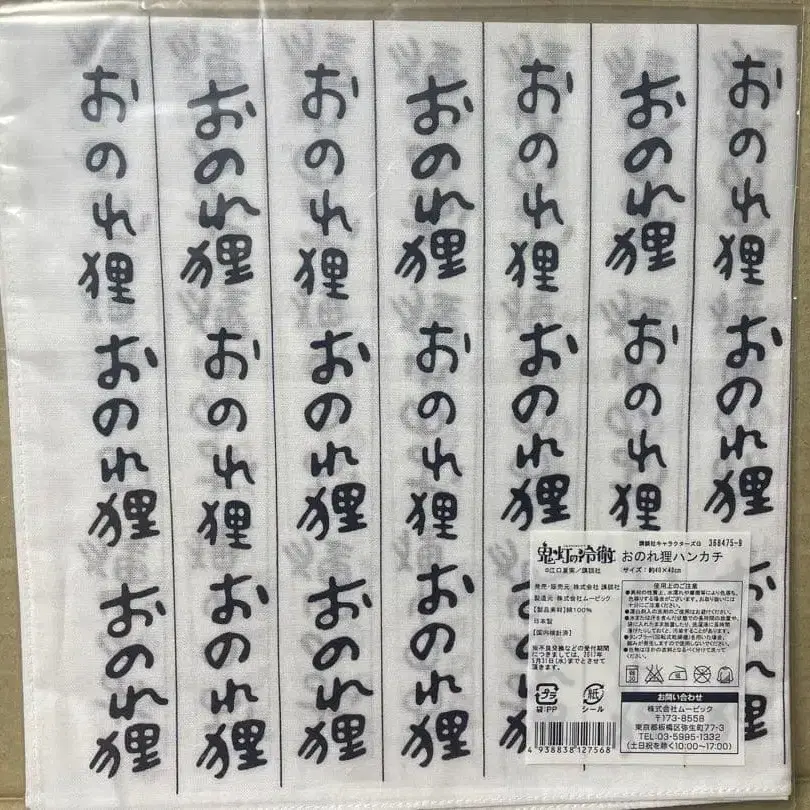 おのれ狸 おのれ狸
おのれ狸 おのれ狸
おのれ狸 おのれ狸
おのれ狸 おのれ狸 おのれ狸
おのれ狸 おのれ狸 おのれ狸
おのれ狸 おのれ狸 おのれ狸
おのれ狸 おのれ狸 おのれ狸
鬼灯の冷徹
©江口夏実/講談社
講談社キャラクターズ 368475-9
おのれ狸ハンカチ
サイズ:約40×40cm
発売・販売元:株式会社 講談社
製造元:株式会社ムービック
【製品素材】綿100%
日本製
【国内検針済】
※不良交換などの受付期間
につきましては、2017年
5月31日(水)までとさせて
頂きます。
プラ
袋:PP
紙
シール
4 938838 127568
使用上のご注意
お問い合わせ
株式会社ムービック
〒173-8558
東京都板橋区弥生町77-3
TEL:03-5995-1332
(土日祝を除く10:00~17:00)